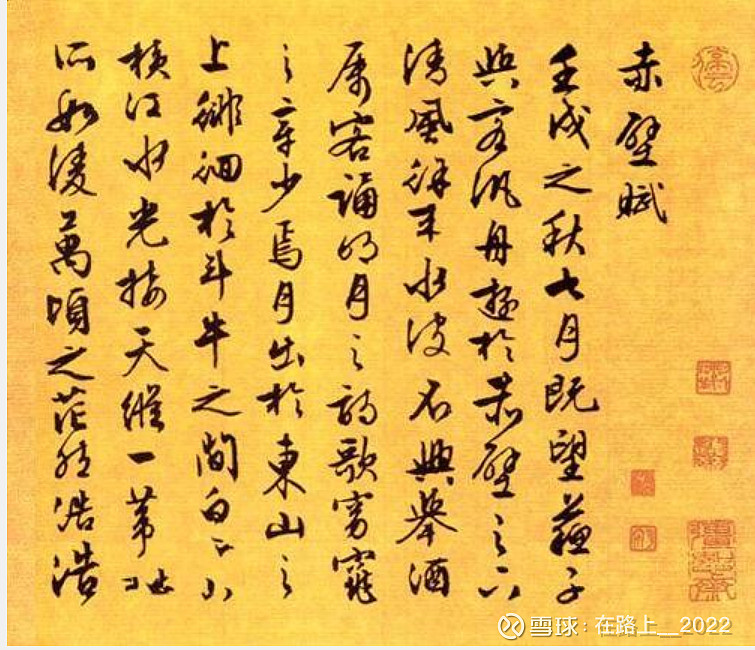 赤壁賦
壬戌之秋七月既望蘇子
與客汎舟遊於赤壁之下
清風徐來水波不興舉酒
屬客誦明月之詩歌窈窕
之章少焉月出於東山之
上徘徊於斗牛之間白露
橫江水光接天縱一葦之
所如凌萬頃之茫然浩浩
雪球：在路上__2022